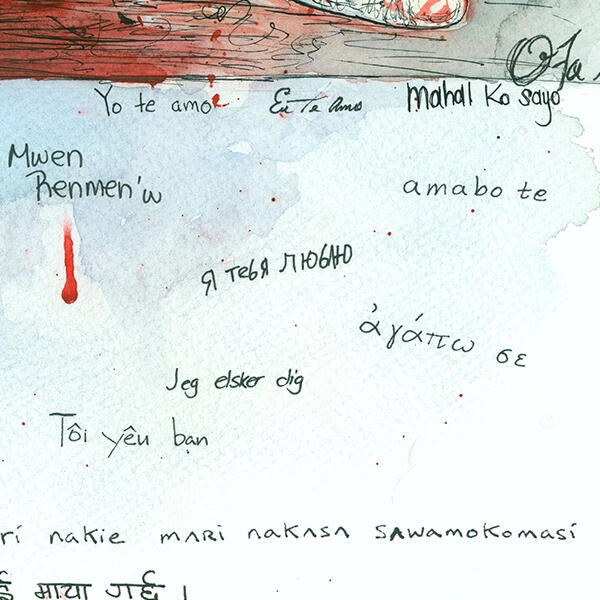 Yo te amo
Eu Te Amo
Mahal Ko Sayo
Mwen
Renmen'w
amabo te
Я тебя люблю
ἀγάπω σε
Jeg elsker dig
Tôi yêu bạn
nakie MARI nakasa sawamokomasí
माया गर्छु ।